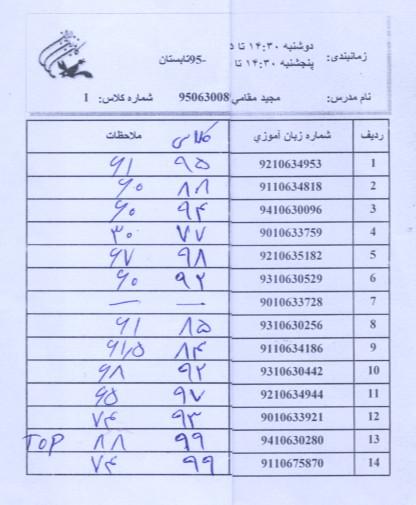 زمانبندی: دوشنبه ۱۴:۳۰ تا
پنجشنبه ۱۴:۳۰ تا
-95تابستان
نام مدرس: مجید مقامی 95063008 شماره کلاس: 1
ردیف شماره زبان آموزی کلاسی ملاحظات
1 9210634953 ۹۵ ۶۱
2 9110634818 ۸۸ ۶۰
3 9410630096 ۹۴ ۶۰
4 9010633759 ۷۷ ۳۰
5 9210635182 ۹۸ ۶۷
6 9310630529 ۹۲ ۶۰
7 9010633728 — —
8 9310630256 ۸۵ ۶۱
9 9110634186 ۸۴ ۶۱,۵
10 9310630442 ۹۲ ۶۸
11 9210634944 ۹۷ ۶۵
12 9010633921 ۹۳ ۷۴
13 9410630280 ۹۹ ۸۸ TOP
14 9110675870 ۹۹ ۷۴